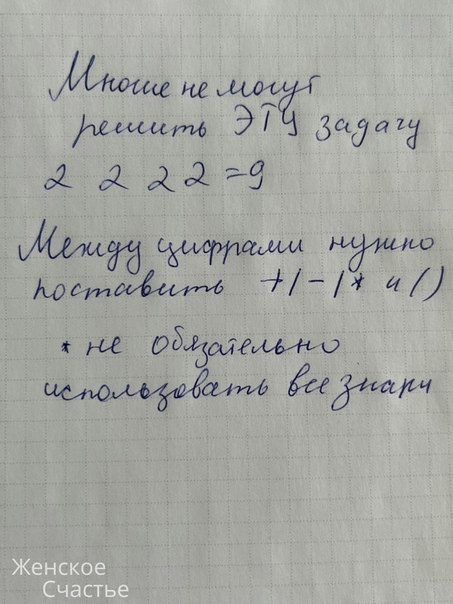 Многие не могут
решить ЭТУ задачу
2 2 2 2 = 9
Между цифрами нужно
поставить +/-/* и ()
* не обязательно
использовать все знаки
Женское
Счастье